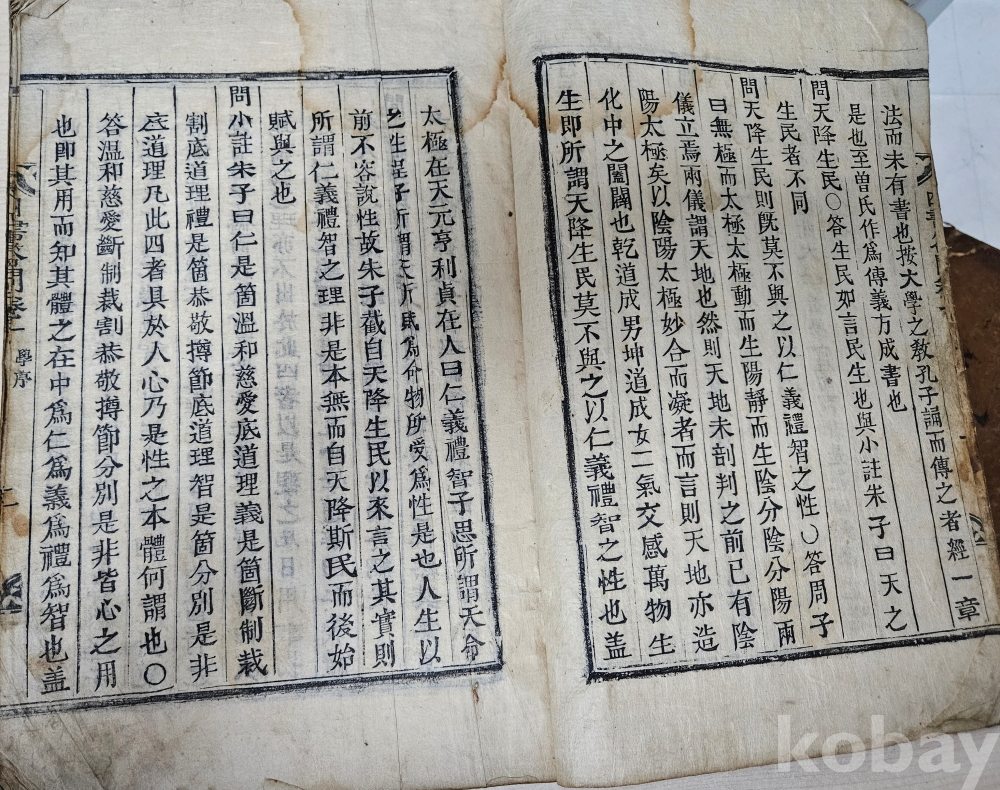 法而未有書也按大學之敎孔子誦而傳之者經一章
是也至曽氏作爲傳義方成書也
問天降生民○答生民如言民生也與小註朱子曰天之
生民者不同
問天降生民則旣莫不與之以仁義禮智之性○答周子
曰無極而太極太極動而生陽靜而生陰分陰分陽兩
儀立焉兩儀謂天地也然則天地未剖判之前已有陰
陽太極矣以陰陽太極妙合而凝者而言則天地亦造
化中之闔闢也乾道成男坤道成女二氣交感萬物生
生即所謂天降生民莫不與之以仁義禮智之性也盖
太極在天元亨利貞在人曰仁義禮智子思所謂天命
之性程子所謂天所賦爲命物所受爲性是也人生以
前不容說性故朱子截自天降生民以來言之其實則
所謂仁義禮智之理非是本無而自天降斯民而後始
賦與之也
問小註朱子曰仁是箇溫和慈愛底道理義是箇斷制裁
割底道理禮是箇恭敬撙節底道理智是箇分別是非
底道理凡此四者具於人心乃是性之本體何謂也○
答溫和慈愛斷制裁割恭敬撙節分別是非皆心之用
也即其用而知其體之在中爲仁爲義爲禮爲智也盖
學序
kobay